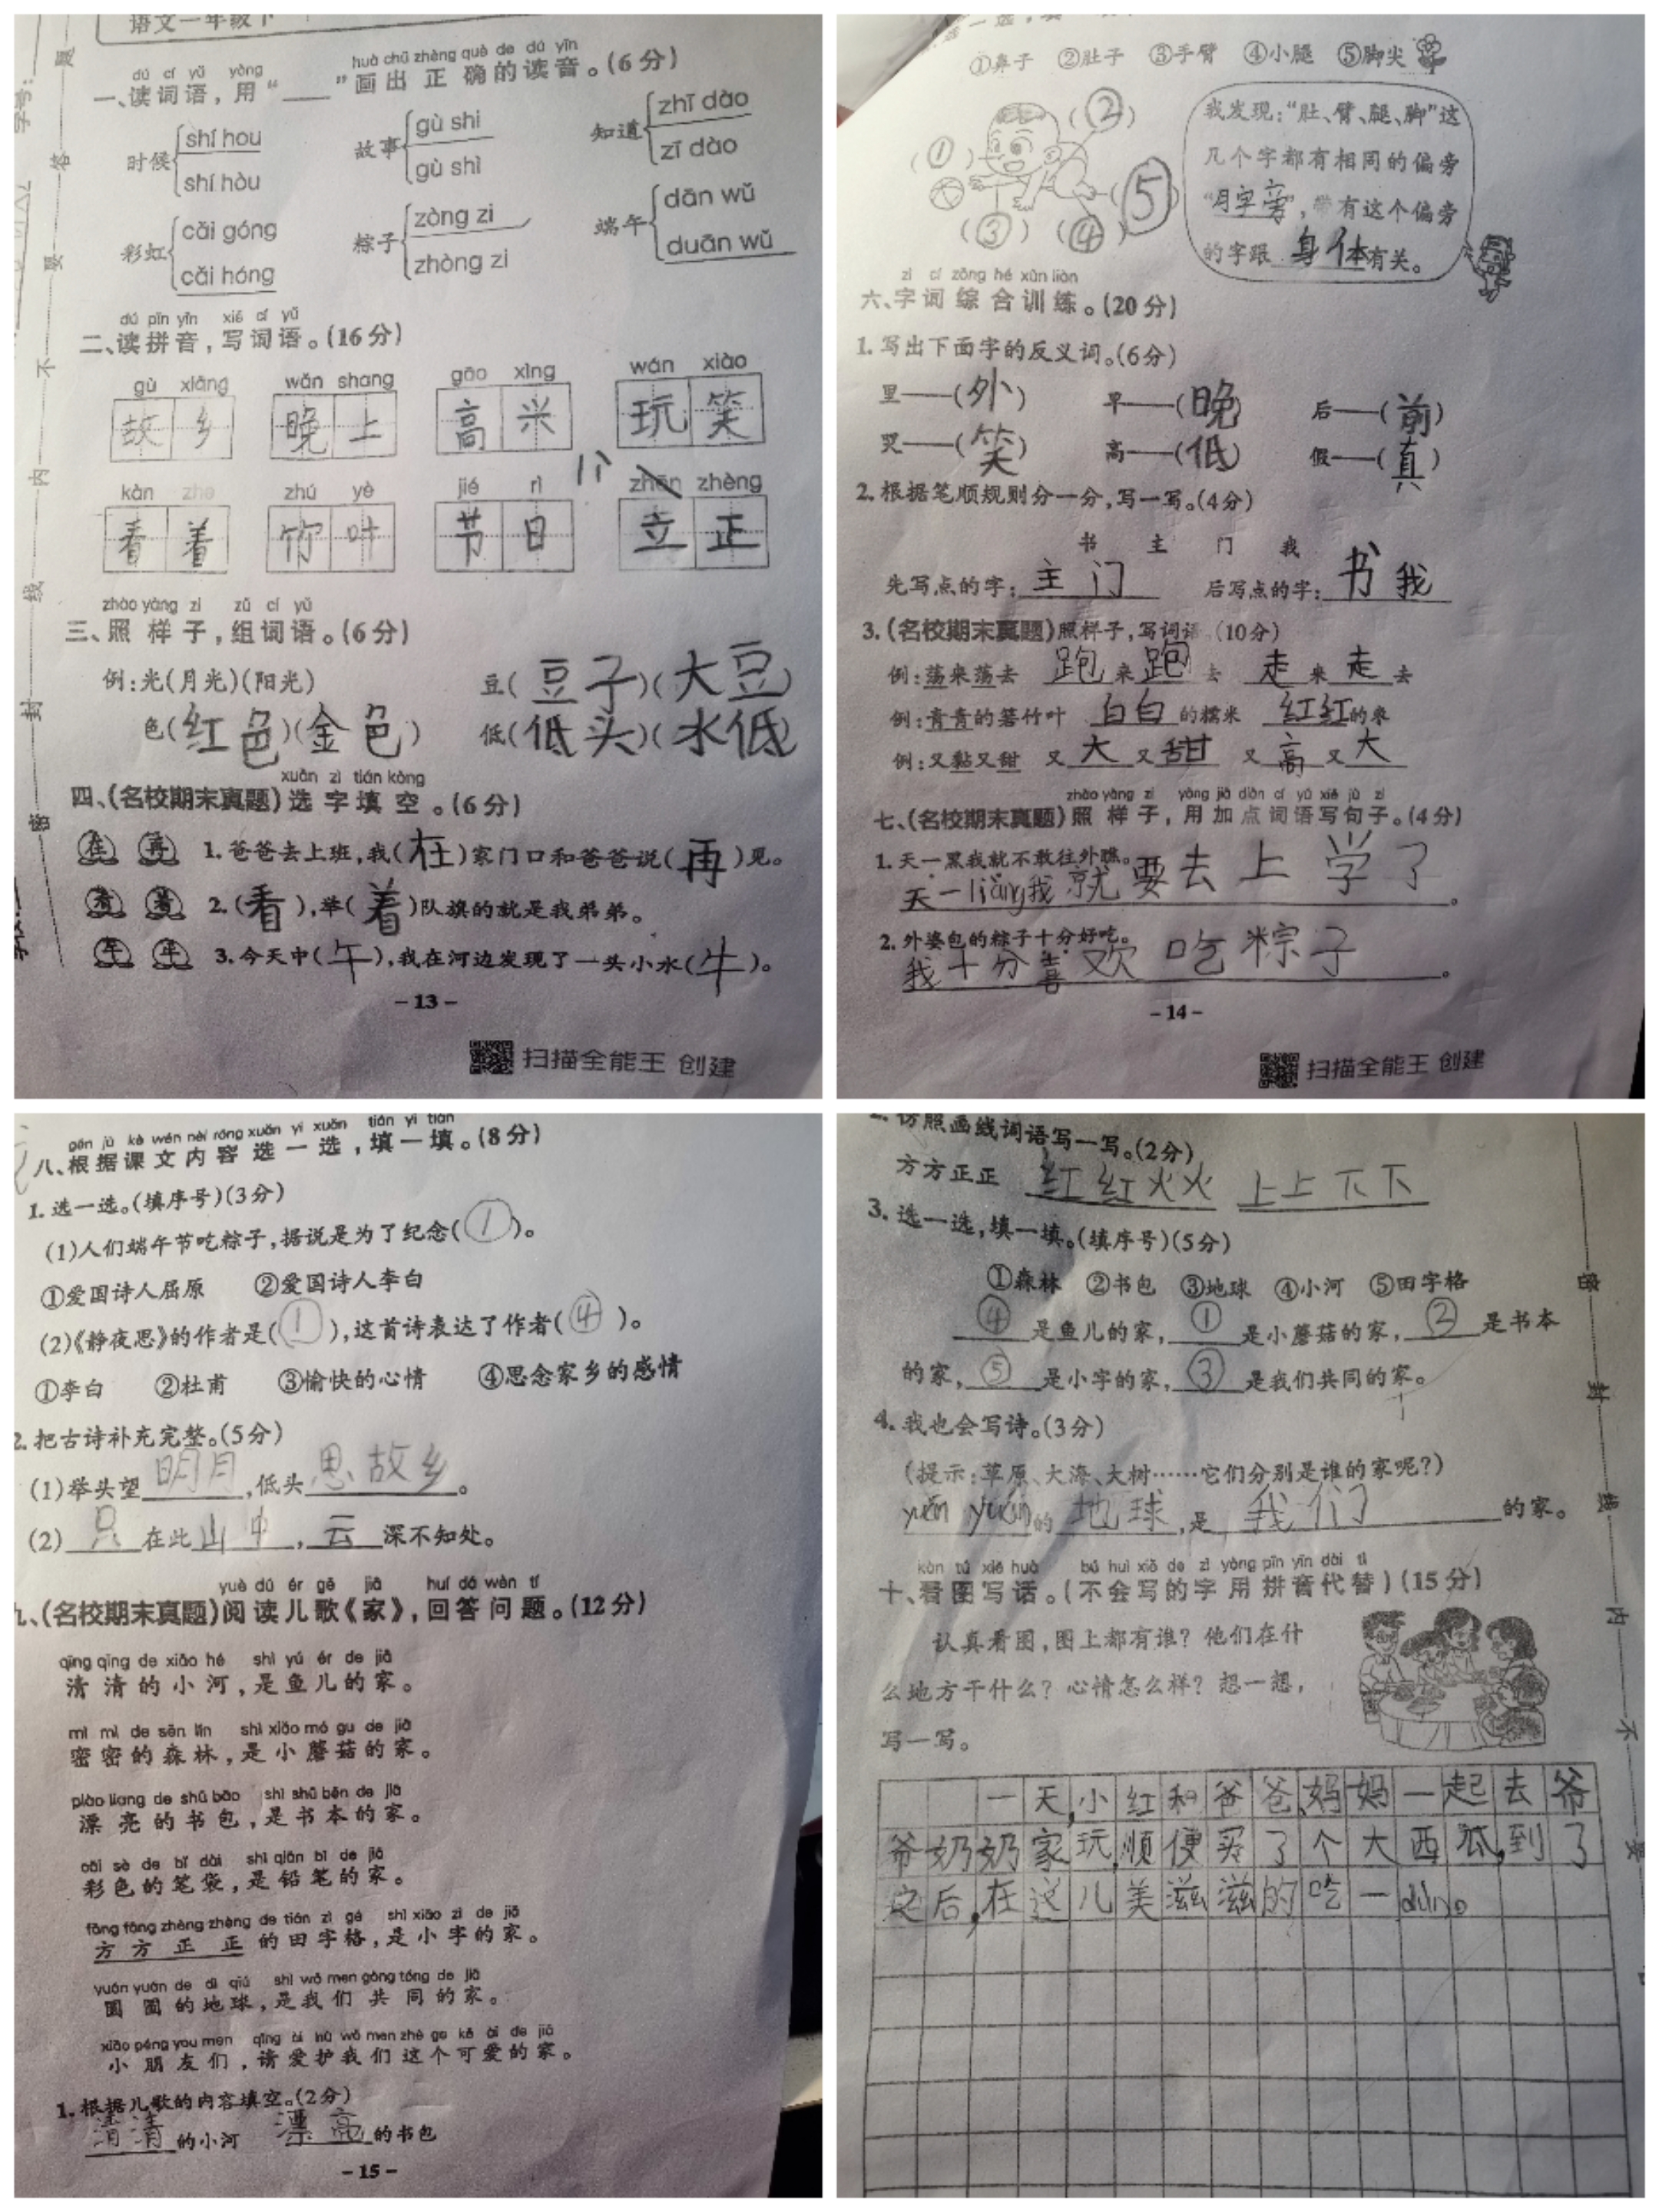 语文一年级下
huà chū zhèng què de dú yīn
dú cí yǔ yòng
一、读词语，用“____”画出正确的读音。(6分)
时候 shí hou shí hòu
故事 gù shi gù shì
知道 zhī dào zī dào
彩虹 cǎi góng cǎi hóng
粽子 zòng zi zhòng zi
端午 dān wǔ duān wǔ
dú pīn yīn xiě cí yǔ
二、读拼音，写词语。(16分)
gù xiāng wǎn shang gāo xìng wán xiào
故乡 晚上 高兴 玩笑
kàn zhe zhú yè jié rì zhèng
看着 竹叶 节日 立正
zhào yàng zi zǔ cí yǔ
三、照样子，组词语。(6分)
例:光(月光)(阳光) 豆(豆子)(大豆)
色(红色)(金色) 低(低头)(水低)
xuǎn zì tián kòng
四、(名校期末真题)选字填空。(6分)
在 再 1.爸爸去上班,我(在)家门口和爸爸说(再)见。
看 着 2.(看),举(着)队旗的就是我弟弟。
午 牛 3.今天中(午),我在河边发现了一头小水(牛)。
-13-
扫描全能王 创建
①鼻子 ②肚子 ③手臂 ④小腿 ⑤脚尖
(②)
(①)
(⑤)
(③) (④)
我发现:“肚、臂、腿、脚”这
几个字都有相同的偏旁
“月字旁”,带有这个偏旁
的字跟身体有关。
zì cí zōng hé xùn liàn
六、字词综合训练。(20分)
1.写出下面字的反义词。(6分)
里——(外) 早——(晚) 后——(前)
哭——(笑) 高——(低) 假——(真)
2.根据笔顺规则分一分,写一写。(4分)
书 主 门 我
先写点的字:主 门 后写点的字:书 我
3.(名校期末真题)照样子,写词语。(10分)
例:荡来荡去 跑来跑去 走来走去
例:青青的箬竹叶 白白的糯米 红红的枣
例:又黏又甜 又大又甜 又高又大
zhào yàng zi yòng jiā diǎn cí yǔ xiě jù zi
七、(名校期末真题)照样子,用加点词语写句子。(4分)
1.天一黑我就不敢往外瞧。
天一liàng我就要去上学了。
2.外婆包的粽子十分好吃。
我十分喜欢吃粽子。
-14-
扫描全能王 创建
gēn jù kè wén nèi róng xuǎn yi xuǎn tián yi tián
八、根据课文内容选一选,填一填。(8分)
1.选一选。(填序号)(3分)
(1)人们端午节吃粽子,据说是为了纪念(①)。
①爱国诗人屈原 ②爱国诗人李白
(2)《静夜思》的作者是(①),这首诗表达了作者(④)。
①李白 ②杜甫 ③愉快的心情 ④思念家乡的感情
2.把古诗补充完整。(5分)
(1)举头望明月,低头思故乡。
(2)只在此山中,云深不知处。
yuè dú ér gē jiā huí dá wèn tí
九、(名校期末真题)阅读儿歌《家》,回答问题。(12分)
qīng qīng de xiǎo hé shì yú ér de jiā
清清的小河,是鱼儿的家。
mì mì de sēn lín shì xiǎo mó gu de jiā
密密的森林,是小蘑菇的家。
piào liang de shū bāo shì shū běn de jiā
漂亮的书包,是书本的家。
cǎi sè de bǐ dài shì qiān bǐ de jiā
彩色的笔袋,是铅笔的家。
fāng fāng zhèng zhèng de tián zì gé shì xiǎo zì de jiā
方方正正的田字格,是小字的家。
yuán yuán de dì qiú shì wǒ men gòng tóng de jiā
圆圆的地球,是我们共同的家。
xiǎo péng you men qǐng ài hù wǒ men zhè ge kě ài de jiā
小朋友们,请爱护我们这个可爱的家。
1.根据儿歌的内容填空。(2分)
清清的小河 漂亮的书包
-15-
2.仿照画线词语写一写。(2分)
方方正正 红红火火 上上下下
3.选一选,填一填。(填序号)(5分)
①森林 ②书包 ③地球 ④小河 ⑤田字格
④是鱼儿的家,①是小蘑菇的家,②是书本
的家,⑤是小字的家,③是我们共同的家。
4.我也会写诗。(3分)
(提示:草原、大海、大树……它们分别是谁的家呢?)
yuán yuán的地球,是我们的家。
kàn tú xiě huà bú huì xiě de zì yòng pīn yīn dài tì
十、看图写话。(不会写的字用拼音代替)(15分)
认真看图,图上都有谁?他们在什
么地方干什么?心情怎么样?想一想,
写一写。
一天,小红和爸爸、妈妈一起去爷
爷奶奶家玩,顺便买了个大西瓜,到了
之后,在这儿美滋滋的吃一dùn。